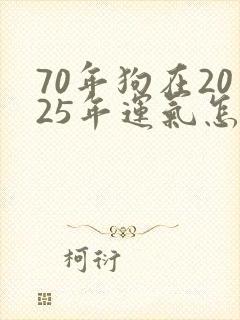 70年狗在20
25年運氣怎
柯衍